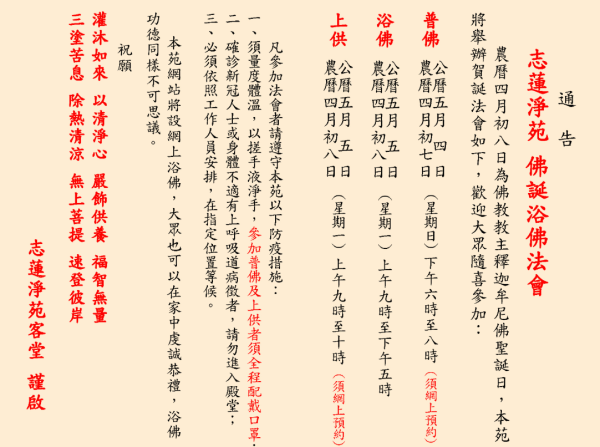 通告
志蓮淨苑 佛誕浴佛法會
農曆四月初八日為佛教教主釋迦牟尼佛聖誕日，本苑
將舉辦賀誕法會如下，歡迎大眾隨喜參加：
普佛 公曆五月四日 農曆四月初七日 （星期日）下午六時至八時（須網上預約）
浴佛 公曆五月五日 農曆四月初八日 （星期一）上午九時至下午五時
上供 公曆五月五日 農曆四月初八日 （星期一）上午九時至十時（須網上預約）
凡參加法會者請遵守本苑以下防疫措施：
一、須量度體溫，以搓手液淨手，參加普佛及上供者須全程配戴口罩；
二、確診新冠人士或身體不適有上呼吸道病徵者，請勿進入殿堂；
三、必須依照工作人員安排，在指定位置等候。
本苑網站將設網上浴佛，大眾也可以在家中虔誠恭禮，浴佛
功德同樣不可思議。
祝願
灌沐如來 以清淨心 嚴飾供養 福智無量
三塗苦息 除熱清涼 無上菩提 速登彼岸
志蓮淨苑客堂 謹啟